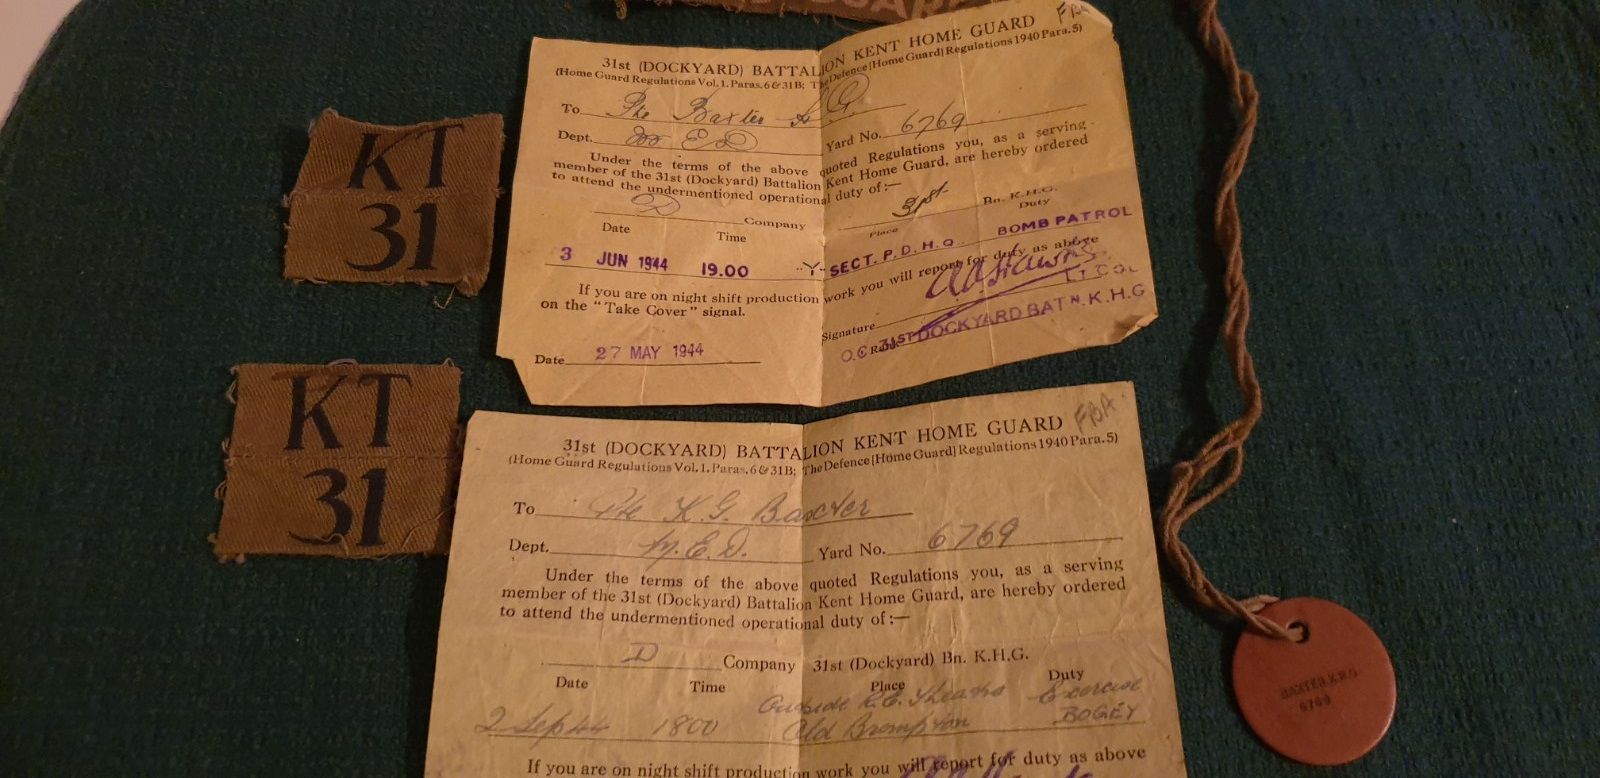 KT
31
KT
31
31st (DOCKYARD) BATTALION KENT HOME GUARD
FBA
(Home Guard Regulations Vol. 1. Paras. 6 & 31B; The Defence (Home Guard) Regulations 1940 Para. 5)
To Pte Baxter
Dept. Yard No. 6769
Under the terms of the above quoted Regulations you, as a serving
member of the 31st (Dockyard) Battalion Kent Home Guard, are hereby ordered
to attend the undermentioned operational duty of :—
D Company 31st Bn. K.H.G.
Date Time Place Duty
3 JUN 1944 19.00 -Y- SECT. P. D. H. Q. BOMB PATROL
If you are on night shift production work you will report for duty as above
on the "Take Cover" signal.
Signature LT COL
Date 27 MAY 1944 O.C. 31ST DOCKYARD BATN. K.H.G
31st (DOCKYARD) BATTALION KENT HOME GUARD
FBA
(Home Guard Regulations Vol. 1. Paras. 6 & 31B; The Defence (Home Guard) Regulations 1940 Para. 5)
To Pte K.G. Baxter
Dept. M.E.D. Yard No. 6769
Under the terms of the above quoted Regulations you, as a serving
member of the 31st (Dockyard) Battalion Kent Home Guard, are hereby ordered
to attend the undermentioned operational duty of :—
D Company 31st (Dockyard) Bn. K.H.G.
Date Time Place Duty
Outside R.E. Theatre Exercise
2 Sep 44 1800 Old Brompton BOGEY
If you are on night shift production work you will report for duty as above
BAXTER
6769